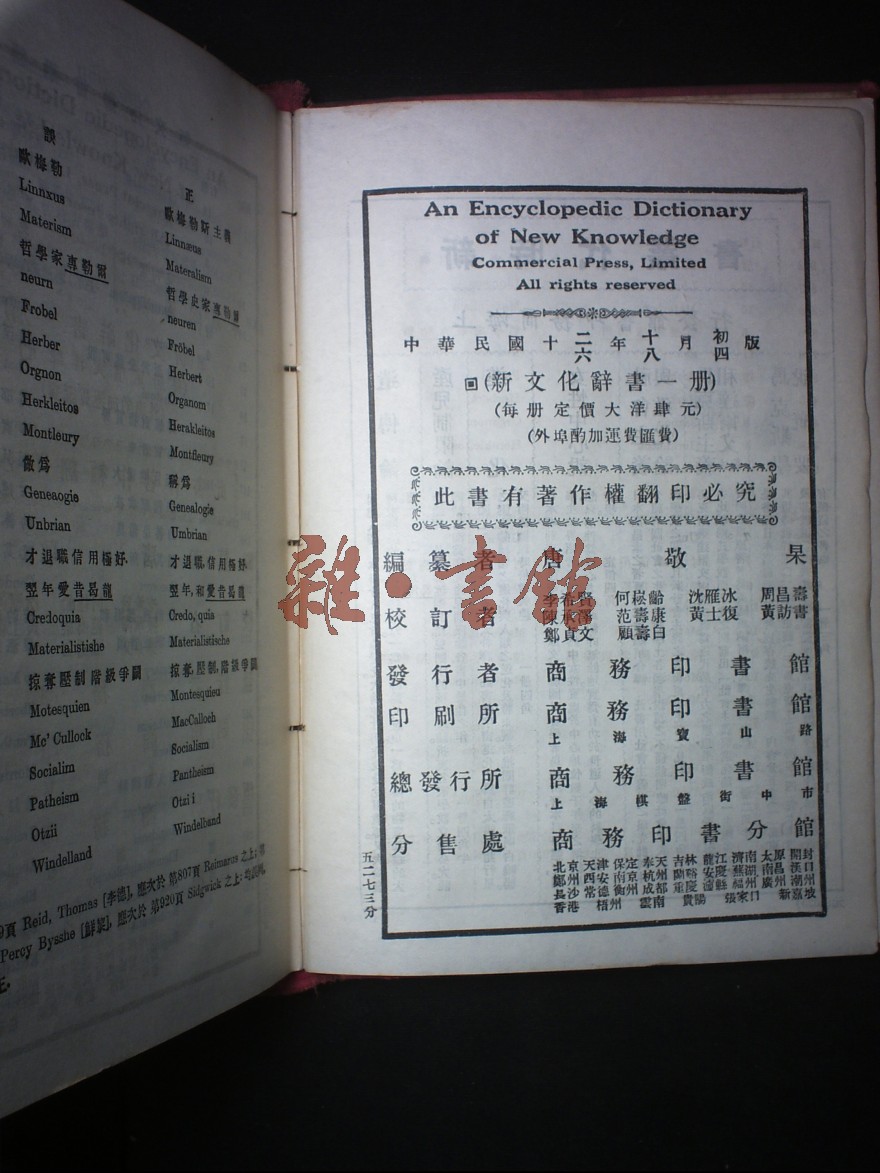 誤
歐梅勒
Linnxus
Materism
哲學家專勒爾
neurn
Frobel
Herber
Orgnon
Herkleitos
Montleury
做爲
Geneaogie
Unbrian
才退職信用極好
翌年愛昔曷龍
Credoquia
Materialistishe
掠奪壓制階級爭鬪
Motesquien
Mc' Cullock
Socialim
Patheism
Otzii
Windelland
正
歐梅勒斯主義
Linnæus
Materalism
哲學史家專勒爾
neuren
Fröbel
Herbert
Organom
Herakleitos
Montfleury
稱爲
Genealogie
Umbrian
才退職,信用極好
翌年,和愛昔曷龍
Credo, quia
Materialistische
掠奪,壓制,階級爭鬪
Montesquieu
MacCalloch
Socialism
Pantheism
Otzi i
Windelband
9頁 Reid, Thomas [李德], 應次於 第807頁 Reimarus 之上;
Percy Bysshe [鮮黎], 應次於 第920頁 Sidgwick 之上;
正.
An Encyclopedic Dictionary
of New Knowledge
Commercial Press, Limited
All rights reserved
中華民國十二六年十八月初四版
(新文化辭書一册)
(每册定價大洋肆元)
(外埠酌加運費匯費)
此書有著作權翻印必究
編纂者 唐敬杲
校訂者 李希賢 何崧齡 沈雁冰 周昌壽
陳承澤 范壽康 黃士復 黃訪書
鄭貞文 顧壽白
發行者 商務印書館
印刷所 商務印書館
上海寶山路
總發行所 商務印書館
上海棋盤街中市
分售處 商務印書分館
五二七三分
雜·書館